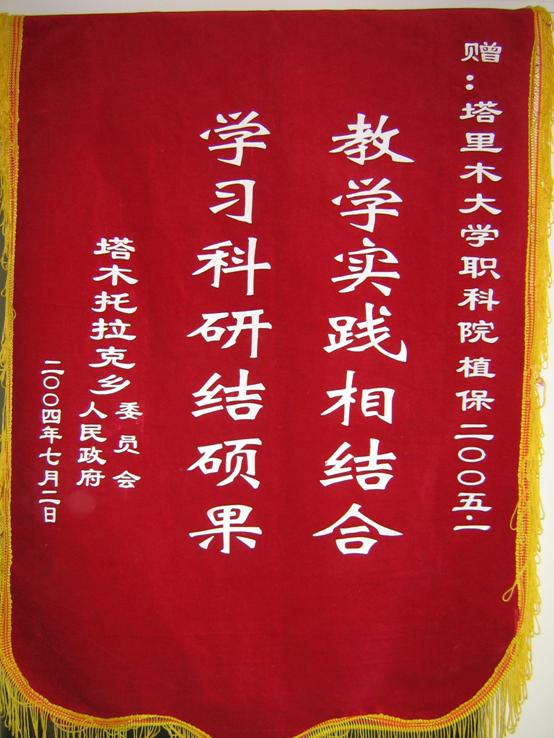 赠：塔里木大学职科院植保二〇〇五·一
教学实践相结合
学习科研结硕果
塔木托拉克乡委员会
人民政府
二〇〇四年七月二日